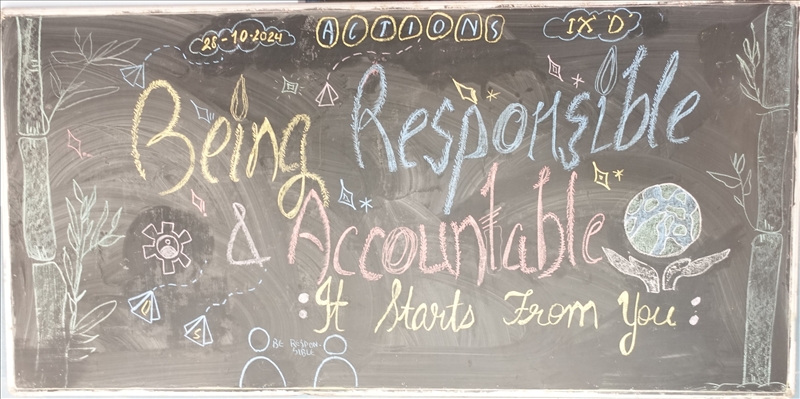 28-10-2024
ACTIONS
IX 'D'
Being Responsible
& Accountable
: It Starts From You :
U
S
BE RESPON-
SIBLE